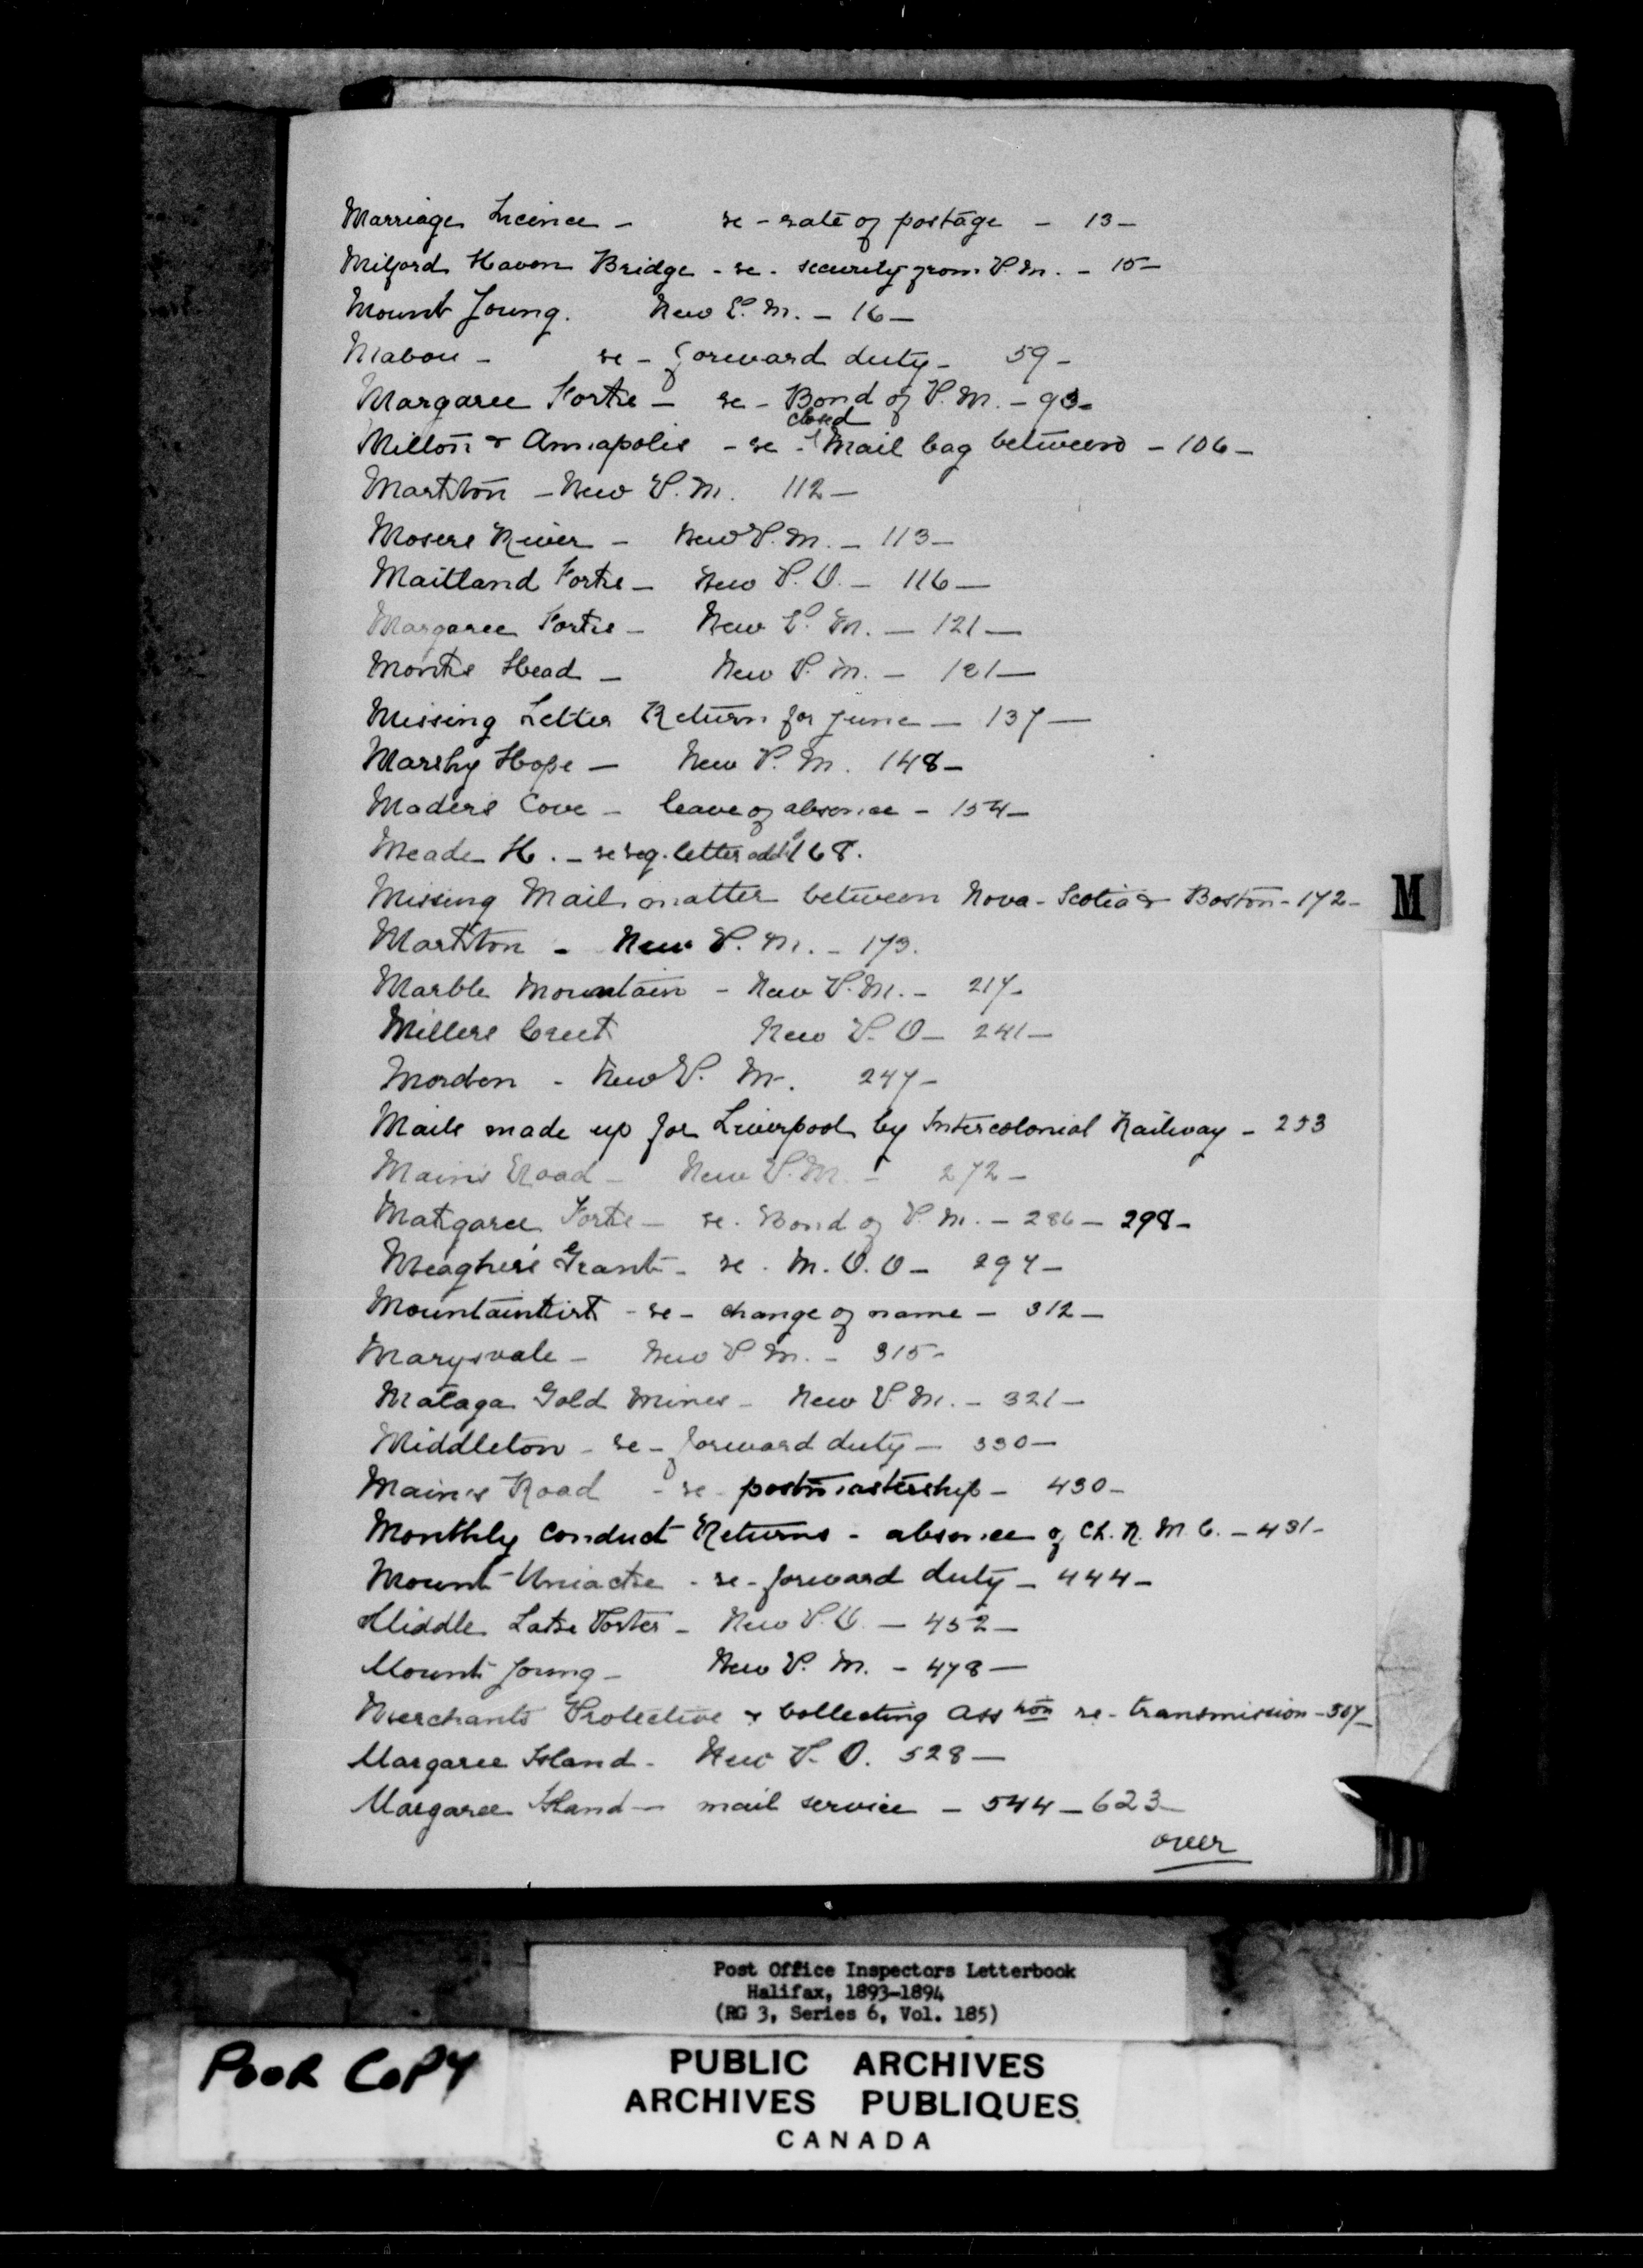 Marriage Licence - re - rate of postage - 13 -
Milford Haven Bridge - re - security from P.M. - 15 -
Mount Young. New P.M. - 16 -
Mabou - re - forward duty - 59 -
Margaree Forks - re - Bond of P.M. - 93 -
closed
Milton & Annapolis - re - ^ Mail bag between - 106 -
Markton - New P.M. 112 -
Mosers River - New P.M. - 113 -
Maitland Forks - New P.O. - 116 -
Margaree Forks - New P.M. - 121 -
Monks Head - New P.M. - 121 -
Missing Letter Return for June - 137 -
Marshy Hope - New P.M. 148 -
Maders Cove - leave of absence - 154 -
Meade H. - re reg. letter add'd 168.
Missing Mail matter between Nova-Scotia & Boston - 172 -
Markton - New P.M. - 173.
Marble Mountain - New P.M. - 217 -
Millers Creek New P.O - 241 -
Morden - New P.M. 247 -
Mails made up for Liverpool by Intercolonial Railway - 253
Main's Road - New P.M. - 272 -
Margaree Forks - re. Bond of P.M. - 286 - 298 -
Meagher's Grant - re. M.O.O - 297 -
Mountainkirk - re - change of name - 312 -
Marysvale - New P.M. - 315 -
Malaga Gold Mines - New P.M. - 321 -
Middleton - re - forward duty - 330 -
Main's Road - re - postmastership - 430 -
Monthly Conduct Returns - absence of Ch. R. M. C. - 431 -
Mount Uniacke - re - forward duty - 444 -
Middle Lake Porter - New P.O. - 452 -
Mount Young - New P.M. - 478 -
Merchants Protective & Collecting Asstion re - transmission - 507 -
Margaree Island - New P.O. 528 -
Margaree Island - mail service - 544 - 623 -
over
M
Post Office Inspectors Letterbook
Halifax, 1893-1894
(RG 3, Series 6, Vol. 185)
POOR COPY
PUBLIC ARCHIVES
ARCHIVES PUBLIQUES
CANADA